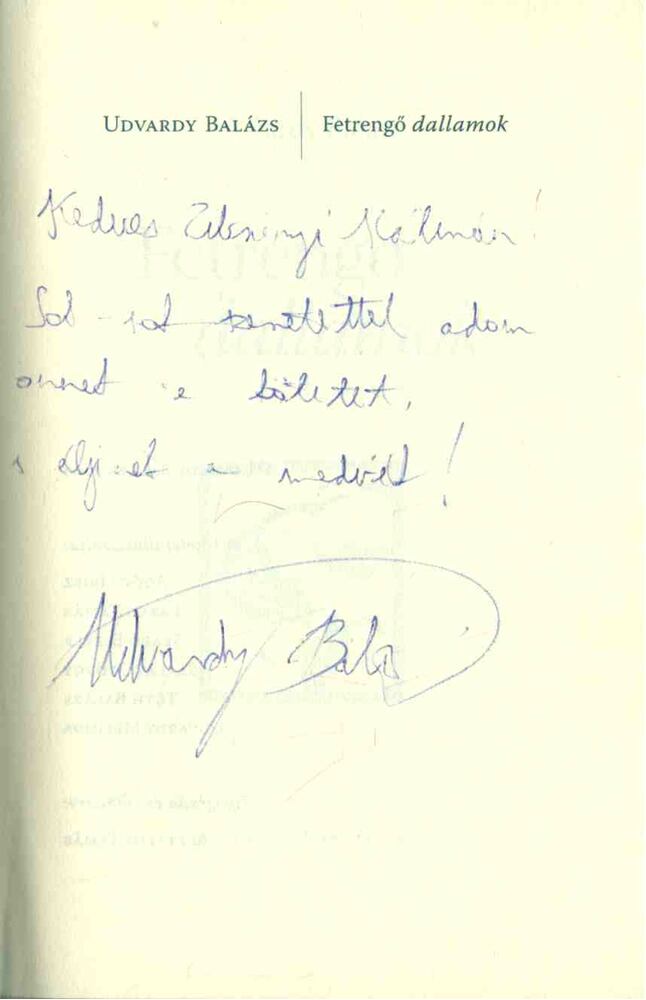 UDVARDY BALÁZS | Fetrengő dallamok
Kedves Kálmán!
Sok-sok szeretettel adom
önnek e kötetet,
s a medvék!
Udvardy Balázs